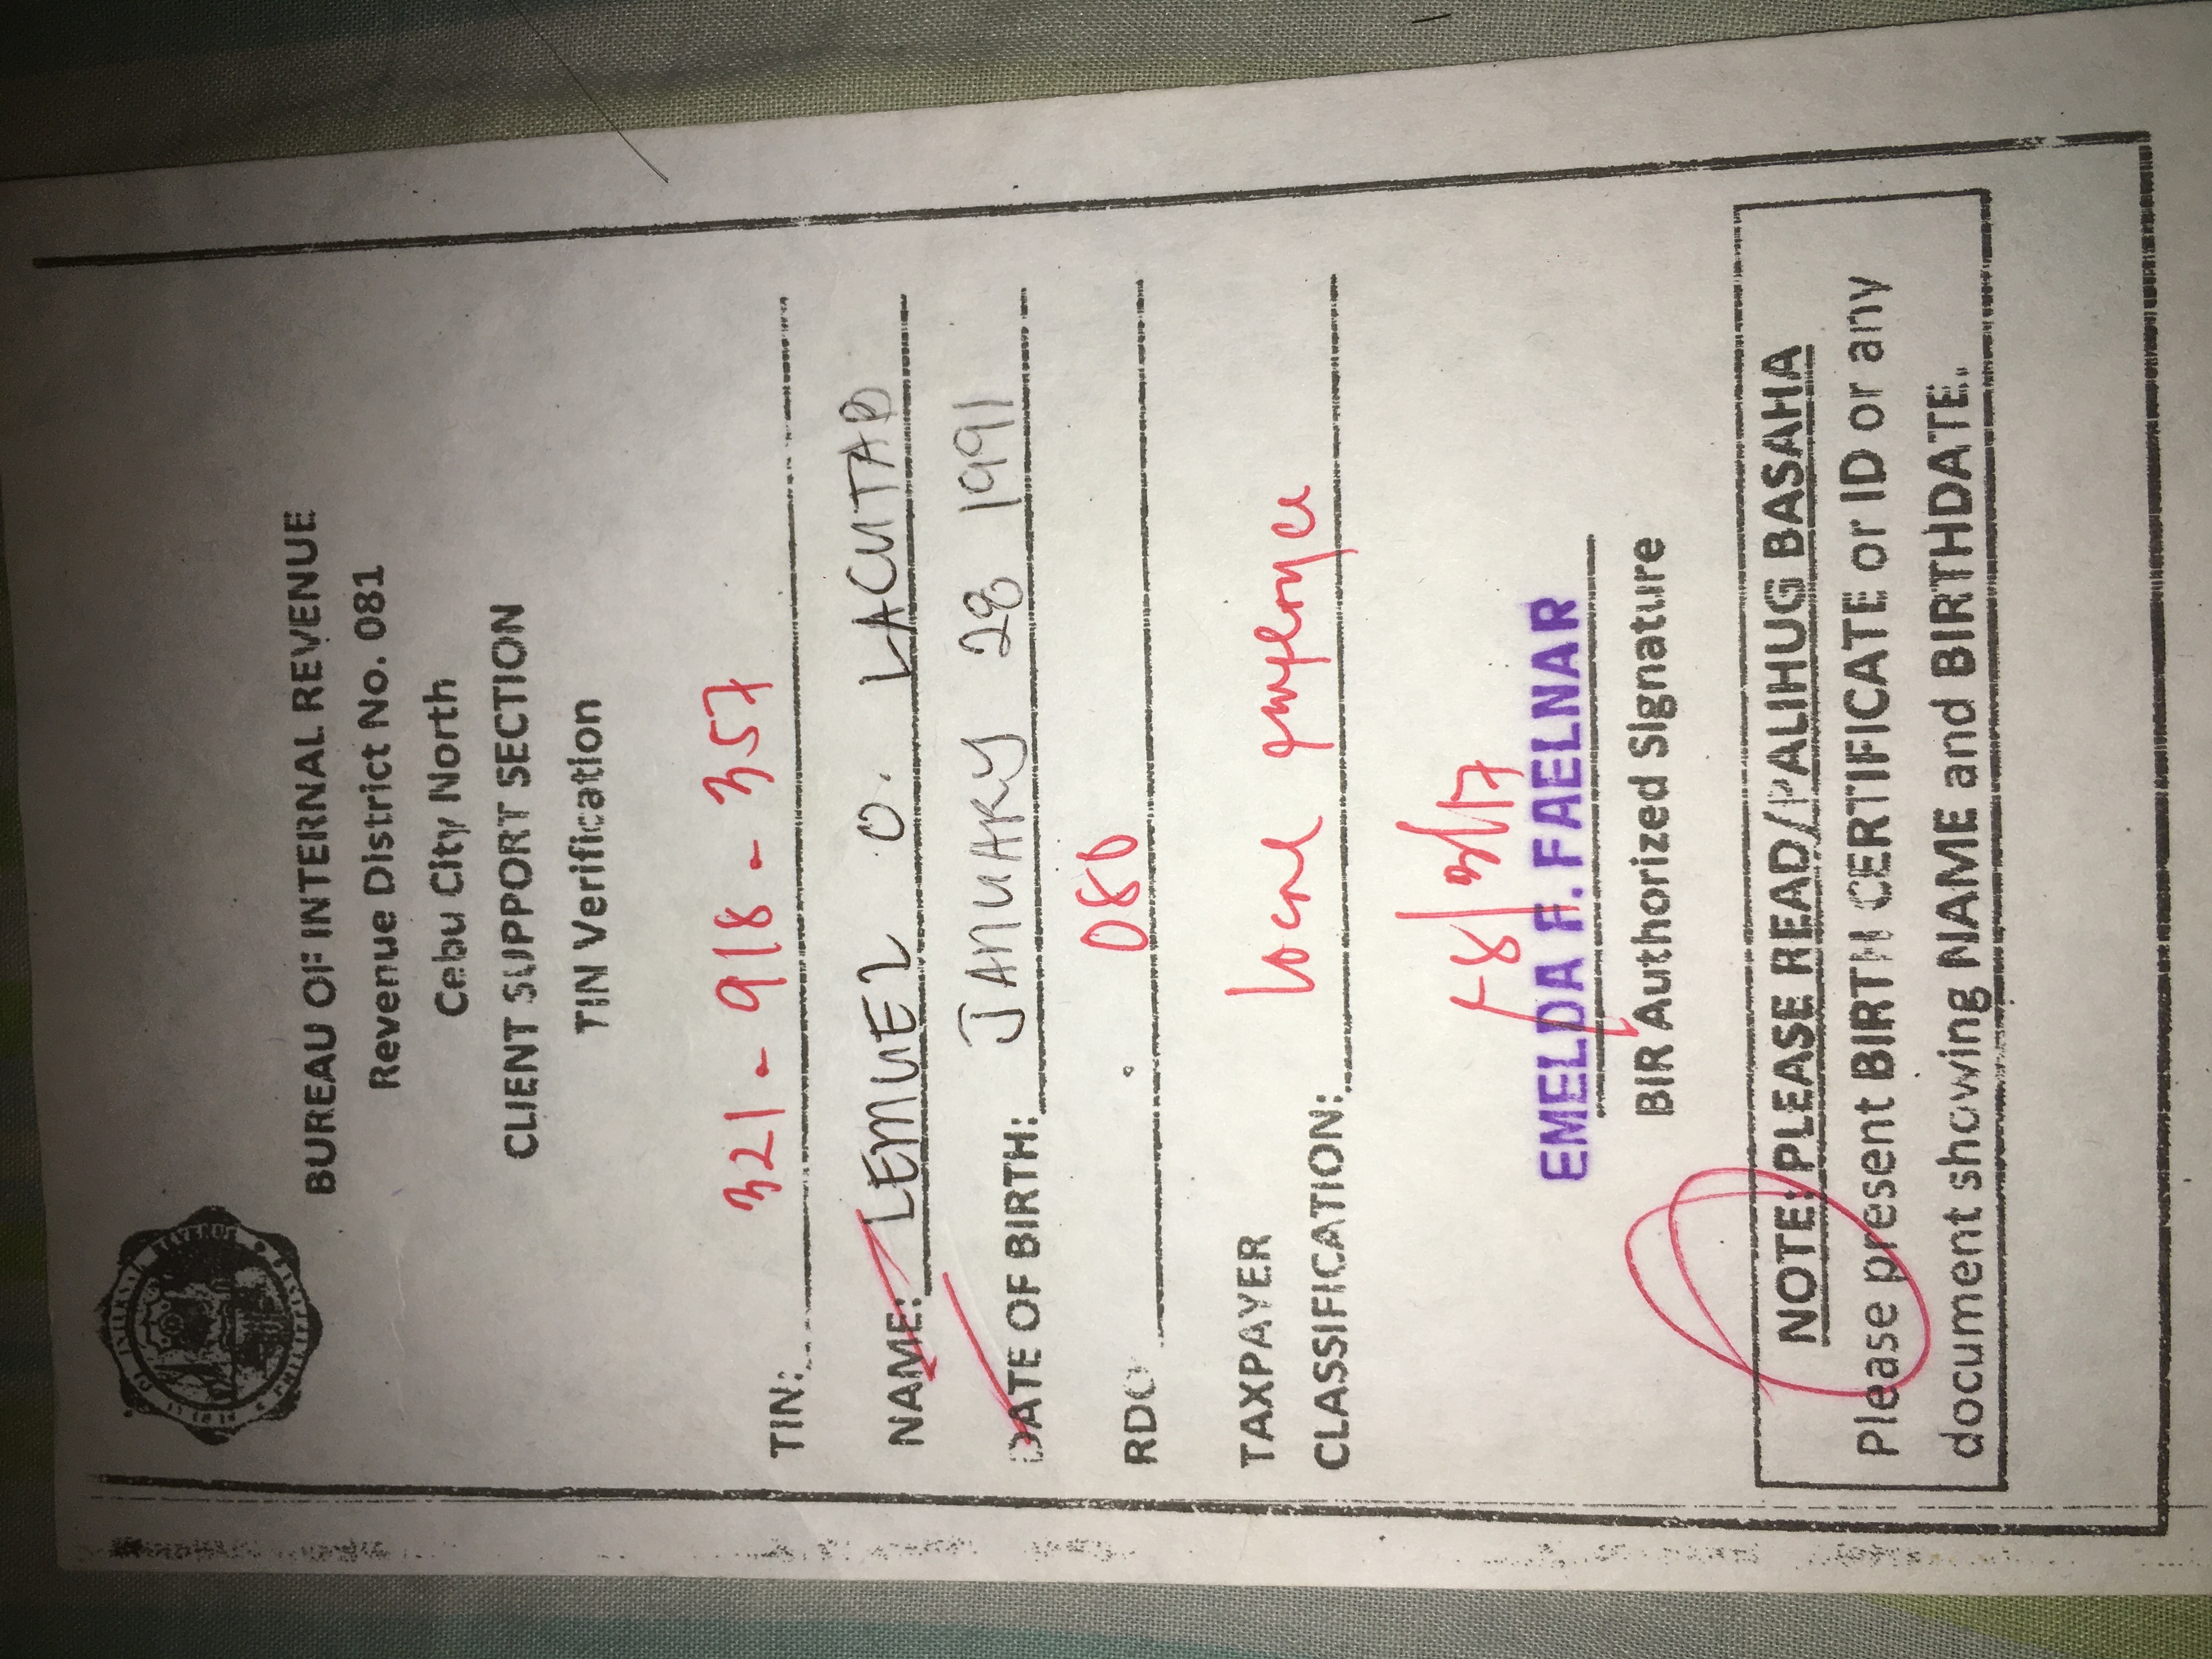 BUREAU OF INTERNAL REVENUE
Revenue District No. 081
Cebu City North
CLIENT SUPPORT SECTION
TIN Verification
TIN: 321-918-357
NAME: LEMUEL O. LACUTAB
DATE OF BIRTH: JANUARY 28 1991
RDO 080
TAXPAYER
CLASSIFICATION: local employee
8/3/17
EMELDA F. FAELNAR
BIR Authorized Signature
NOTE: PLEASE READ/PALIHUG BASAHA
Please present BIRTH CERTIFICATE or ID or any
document showing NAME and BIRTHDATE.